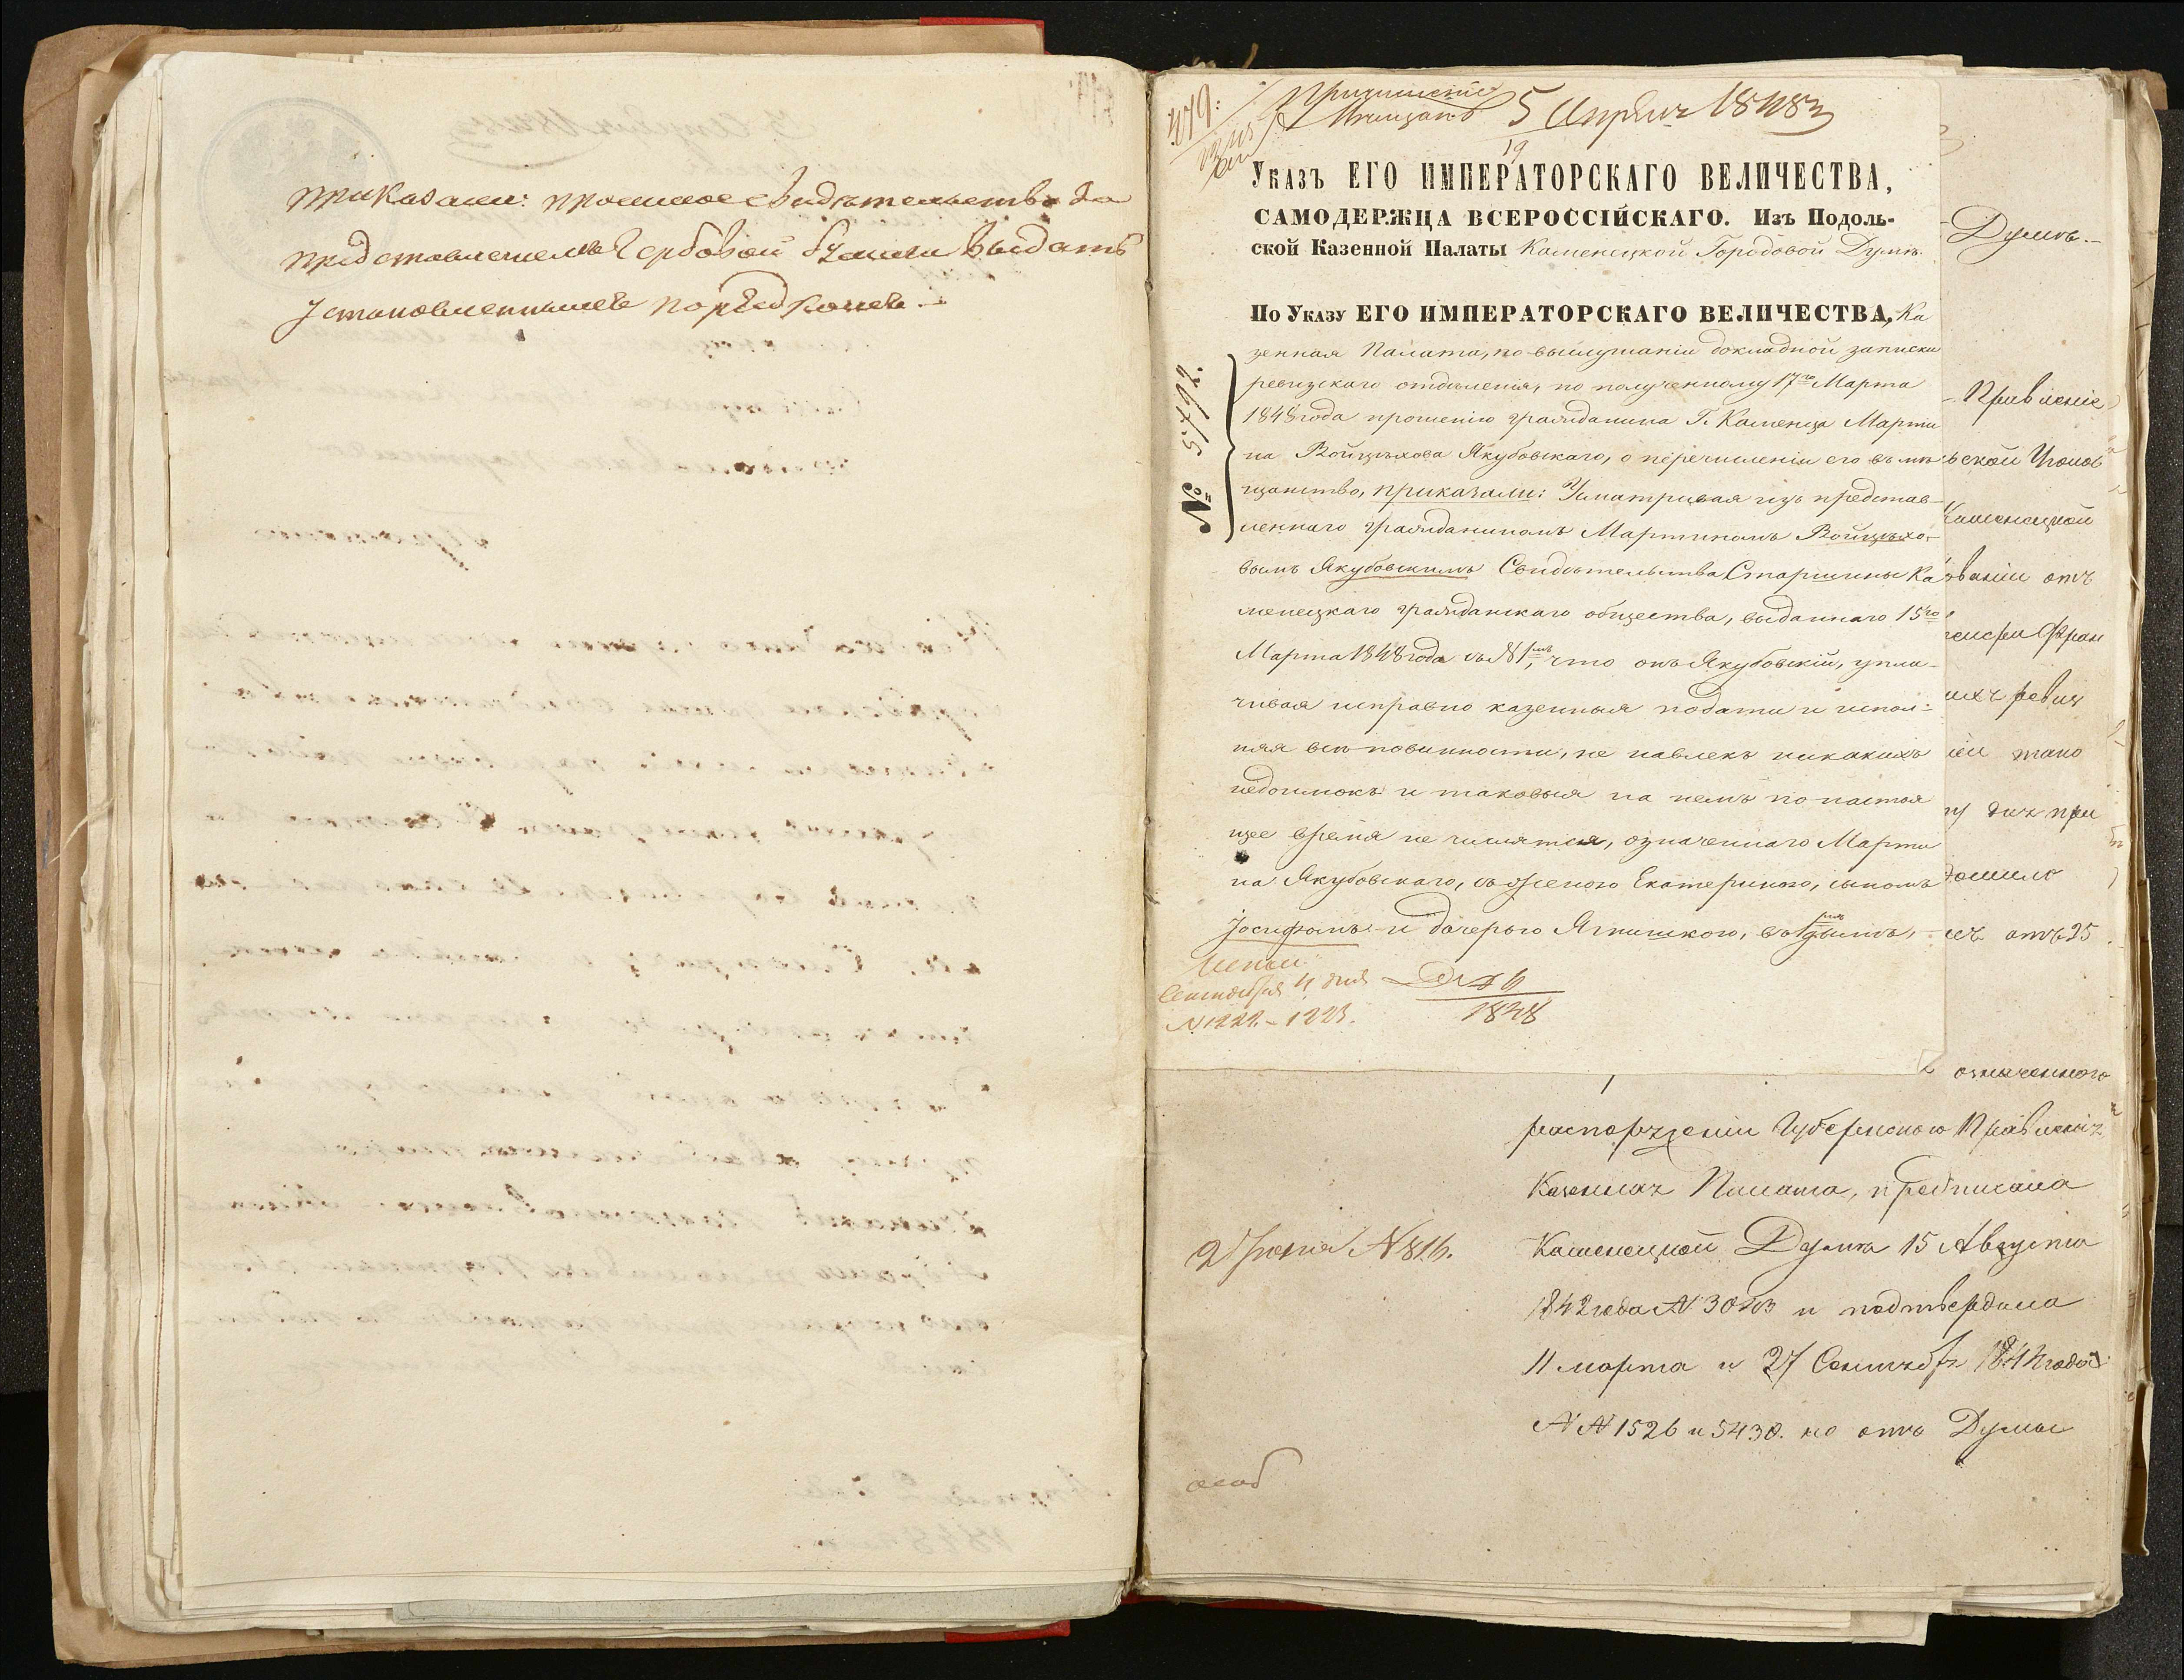 приказали: просимое свидѣтельство за
представленіемъ Гербовой бумаги выдать
установленнымъ порядкомъ.
479.
Причисленіе
Мѣщанъ
5 Апрѣля 1848
19
Указъ ЕГО ИМПЕРАТОРСКАГО ВЕЛИЧЕСТВА,
САМОДЕРЖЦА ВСЕРОССІЙСКАГО. Изъ Подоль-
ской Казенной Палаты Каменецкой Городовой Думѣ.
По Указу ЕГО ИМПЕРАТОРСКАГО ВЕЛИЧЕСТВА, Ка
зенная Палата, по выслушаніи докладной записки
ревизскаго отдѣленія, по полученному 17го Марта
1848 года прошенію гражданина Г. Каменца Марти
на Войцѣхова Якубовскаго, о перечисленіи его въ мѣ
щанство, приказали: Усматривая изъ представ-
леннаго гражданиномъ Мартиномъ Войцѣхо-
вымъ Якубовскимъ Свидѣтельства Старшины Ка
менецкаго гражданскаго общества, выданнаго 15го
Марта 1848 года за №1мъ, что онъ Якубовскій, упла-
чивая исправно казенныя подати и испол-
няя всѣ повинности, не навлекъ никакихъ
недоимокъ и таковыя на немъ по настоя
щее время не числятся, означеннаго Марти
на Якубовскаго, съ женою Екатериною, сыномъ
Іосифомъ и дочерью Ягнишкою, въ
№ 5792.
Сентября 4 дня
№ 1222 - 1223.
1848
Думѣ.
Правленіе
ской Уголов
Каменецкой
званіи отъ
Фран
ихъ ревиз
іи тако
при
отъ 25
означеннаго
распоряженіи Губернскаго Правленія
Казенная Палата, предписала
Каменецкой Думѣ 15 Августа
1842 года № и подтвердила
11 марта и 27 Сентября 1844 года
№№ 1526 и 5430. но отъ Думы
№ 816.